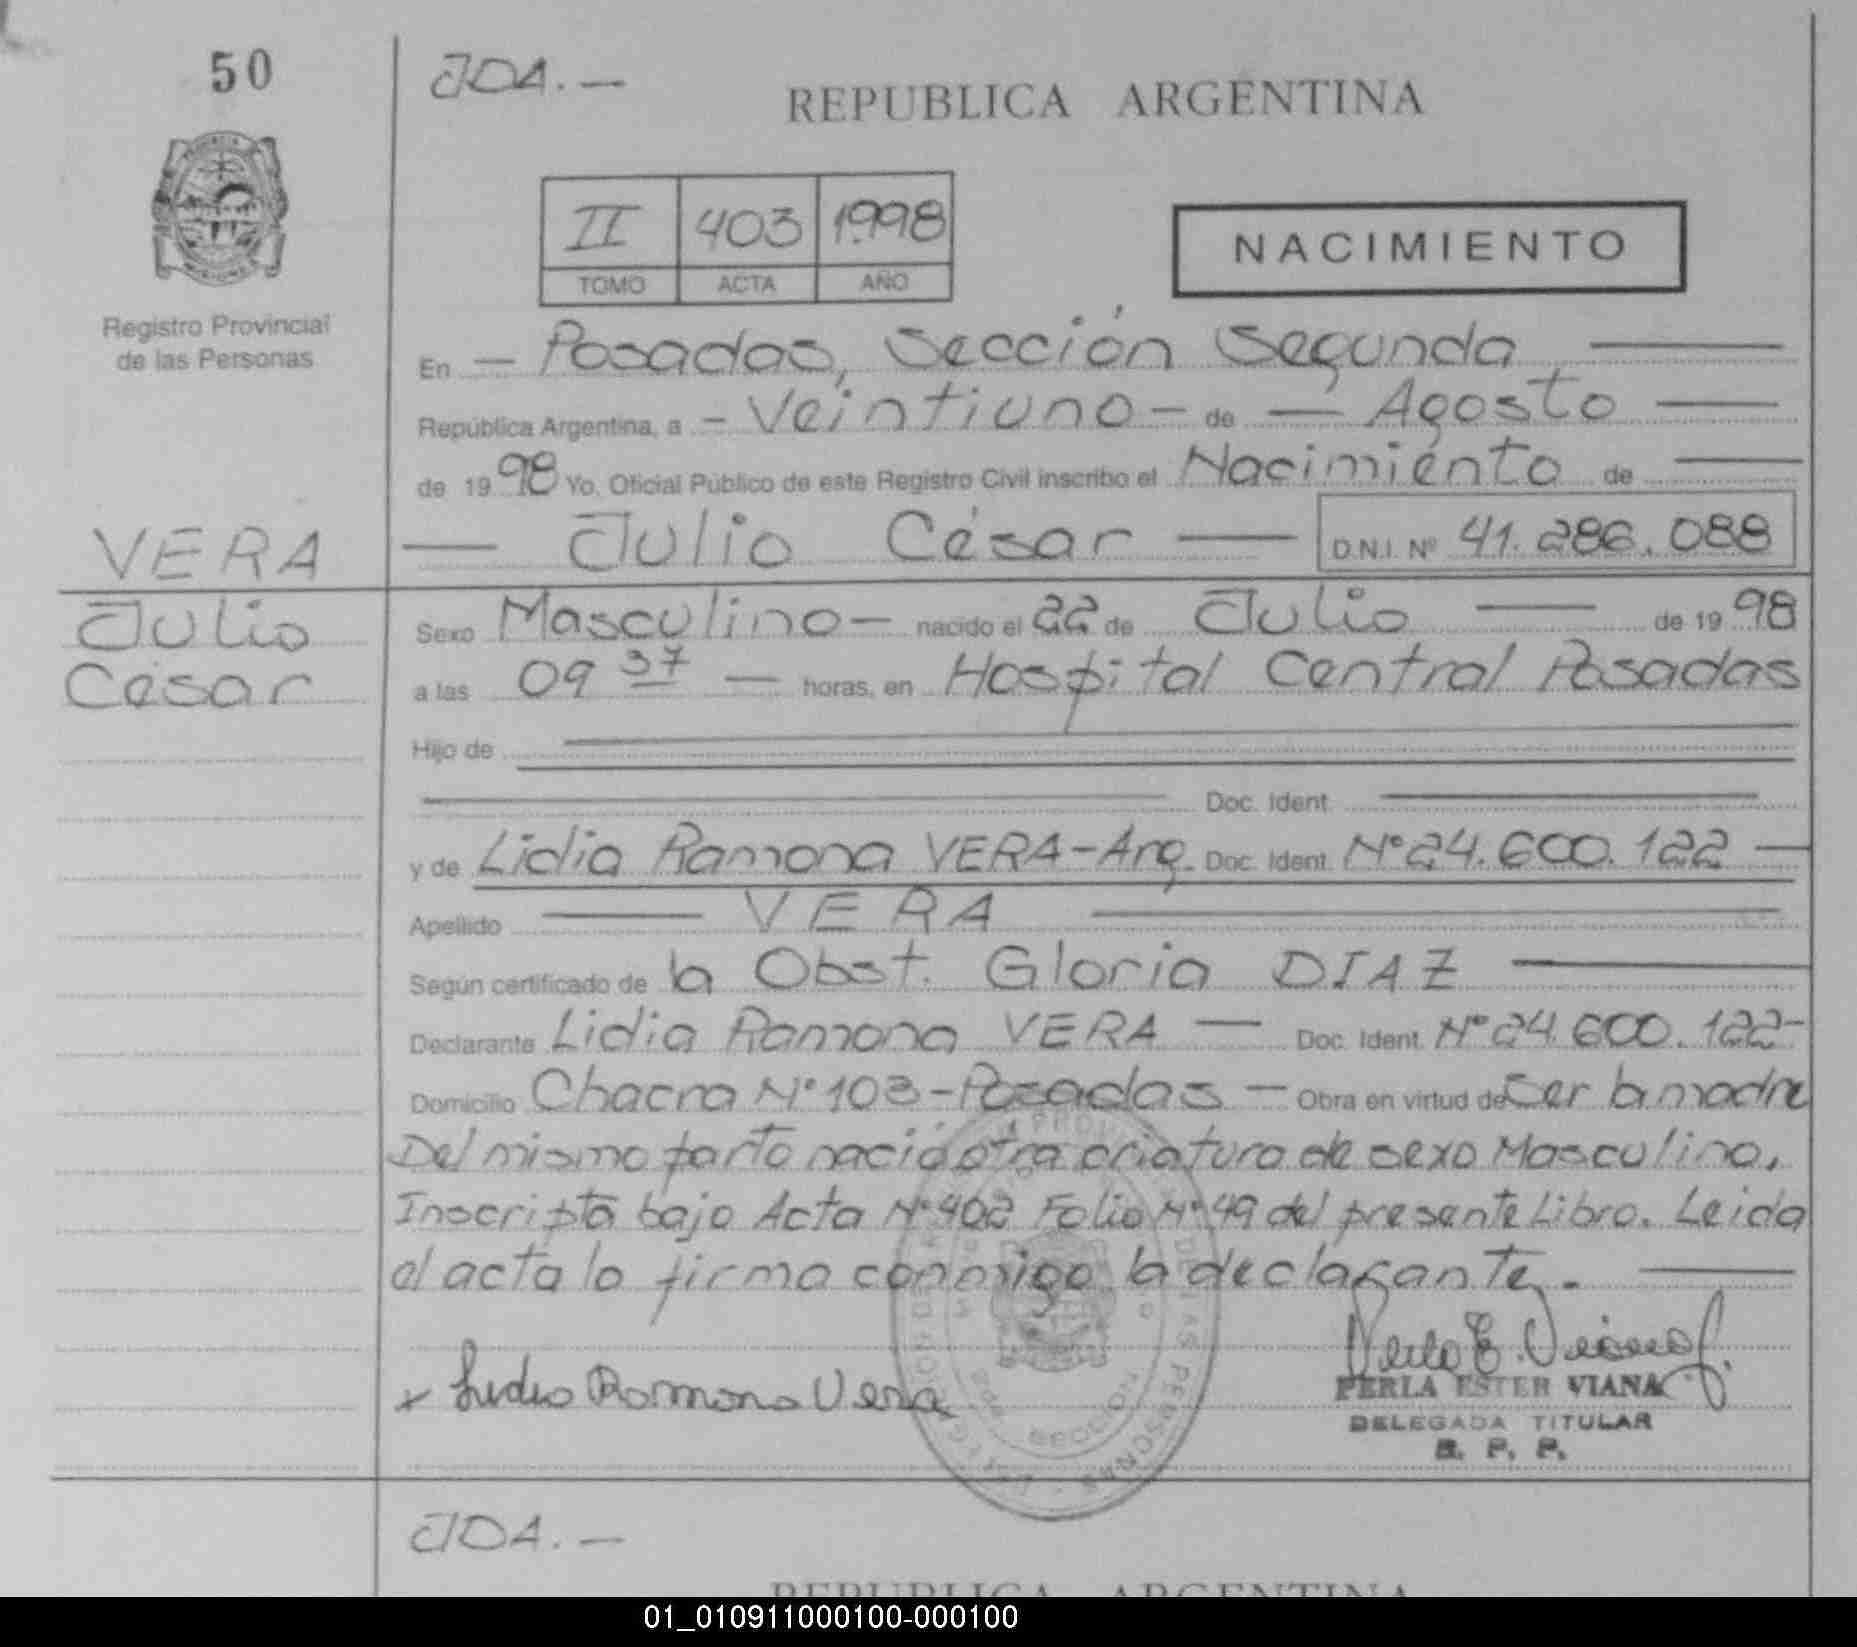 50
JDA.—
REPUBLICA ARGENTINA
II 403 1998
TOMO ACTA AÑO
NACIMIENTO
Registro Provincial
de las Personas
En — Posadas, Sección Segunda —
República Argentina, a – Veintiuno – de — Agosto —
de 1998 Yo, Oficial Público de este Registro Civil inscribo el Nacimiento de —
VERA — Julio César — D.N.I. Nº 41.286.088
Julio
César
Sexo Masculino — nacido el 22 de Julio — de 1998
a las 09 37 — horas, en Hospital Central Posadas
Hijo de
— Doc. Ident. —
y de Lidia Ramona VERA-Arg. Doc. Ident. Nº 24.600.122 —
Apellido — VERA —
Según certificado de la Obst. Gloria DIAZ —
Declarante Lidia Ramona VERA — Doc. Ident. Nº 24.600.122-
Domicilio Chacra Nº 103-Posadas — Obra en virtud de Ser la madre
Del mismo parto nació otra criatura de sexo Masculino,
Inscripta bajo Acta Nº 402 Folio Nº 49 del presente Libro. Leida
el acta lo firma conmigo la declarante. —
x Lidia Ramona Vera
PERLA ESTER VIANA
DELEGADA TITULAR
R. P. P.
JDA.—
REPUBLICA ARGENTINA
01_010911000100-000100